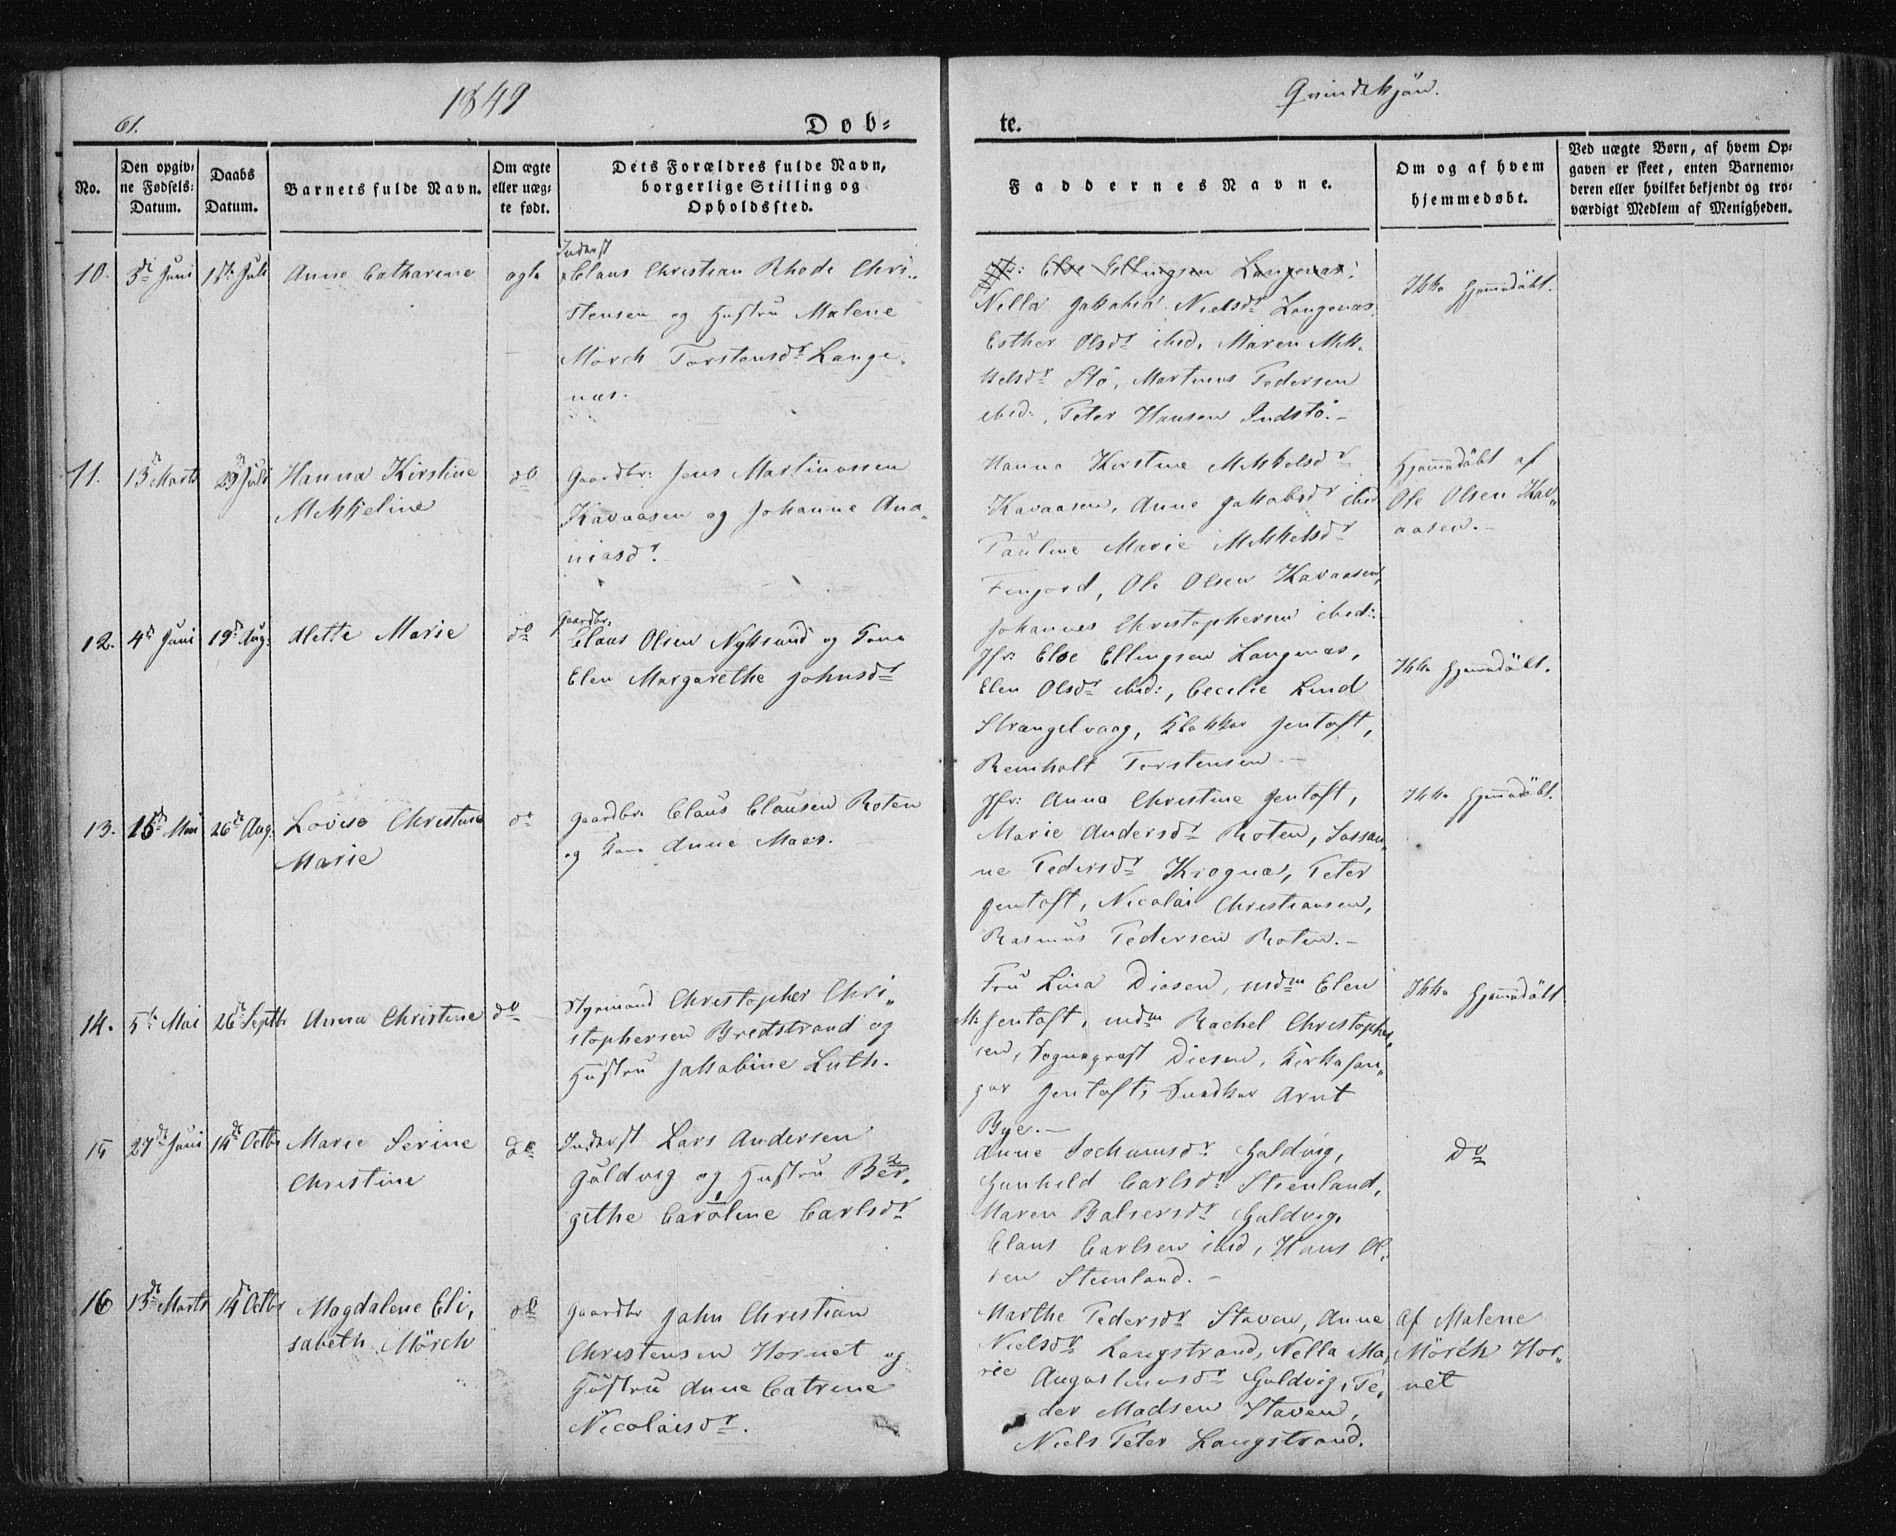 61.
1849
Qvindekjön.
Døb-
te.
No.
Den opgiv-
ne Fødsels-
Datum.
Daabs
Datum.
Barnets fulde Navn.
Om ægte
eller uæg-
te født.
Dets Forældres fulde Navn,
borgerlige Stilling og
Opholdssted.
Faddernes Navne.
Om og af hvem
hjemmedøbt.
Ved uægte Børn, af hvem Op-
gaven er skeet, enten Barnemo-
deren eller hvilket bekjendt og tro-
værdigt Medlem af Menigheden.
10. 3di Juni 1ste Juli Anne Catharine ægte
Inderst
Claus Christian Rhode Chri-
stensen og Hustru Malene
Mörch Torstensdr Lange-
næs.
Jfr: Else Ellingsen Langenæs.
Nella Jakobea Nielsdr Langenæs.
Esther Olsdr ibid, Maren Mik-
kelsdr Stö, Martinus Pedersen
ibid:, Peter Hansen Indstö.-
Ikke Hjemmedöbt.
11. 13de Marts 29de Juli Hanna Kirstine
Mikkeline
do
Gaardbr: Jens Martinussen
Kavaasen og Johanne Ana-
niasdr.
Hanna Kirstine Mikkelsdr
Kavaasen, Anne Jakobsdr ibid
Pauline Marie Mikkelsdr
Fingord, Ole Olsen Kavaasen,
Johannes Christophersen ibid:
Hjemmedöbt af
Ole Olsen Kav-
aasen.-
12. 4de Juni 19de Aug: Mette Marie do
Gaardbr:
Claus Olsen Nyksund og Kone
Elen Margarethe Johnsdr
Jfr: Else Ellingsen Langenæs,
Elen Olsdr ibid:, Cecilie Lind
Strængelvaag, Klokker Jentoft,
Reinholt Torstensen.-
Ikke Hjemmedöbt.
13. 15de Mai 26de Aug. Lovise Christine
Marie
do
Gaardbr. Claus Clausen Roten
og Kone Anne Maes.
Jfr: Anna Christine Jentoft,
Marie Andersdr Roten, Sussan-
ne Pedersdr Krogna, Peter
Jentoft, Nicolai Christiansen,
Rasmus Pedersen Roten.-
Ikke Hjemmedöbt.
14. 5te Mai 26de Septbr Anna Christine do
Styrmand Christopher Chri-
stophersen Bredstrand og
Hustru Jakobine Luth.
Fru Lina Diesen, mdm Elen
M. Jentoft, mdm Rachel Christopher-
sen, Sogneprest Diesen, Kirkesan-
ger Jentoft, Snedker Arnt
Bye.-
Ikke Hjemmedöbt
15 27de Juni 14de Octbr Marie Serine
Christine
do
Inderst Lars Andersen
Guldvig og Hustru Ber-
githe Caroline Carlsdr
Anne Jochumsdr Guldvig,
Gunhild Carlsdr Steenland,
Maren Balsersdr Guldvig,
Claus Carlsen ibid, Hans Ol-
sen Steenland.-
Do
16 13de Marts 14de Octbr Magdalene Eli-
sabeth Mörch
do
Gaardbr John Christian
Christensen Hornet og
Hustru Anne Catrine
Nicolaisdr.
Marthe Pedersdr Staven, Anne
Nielsdr Langstrand, Nella Ma-
rie Augustinusdr Guldvig, Pe-
der Madsen Staven,
Niels Peter Langstrand.
Af Malene
Mörch Hor-
net